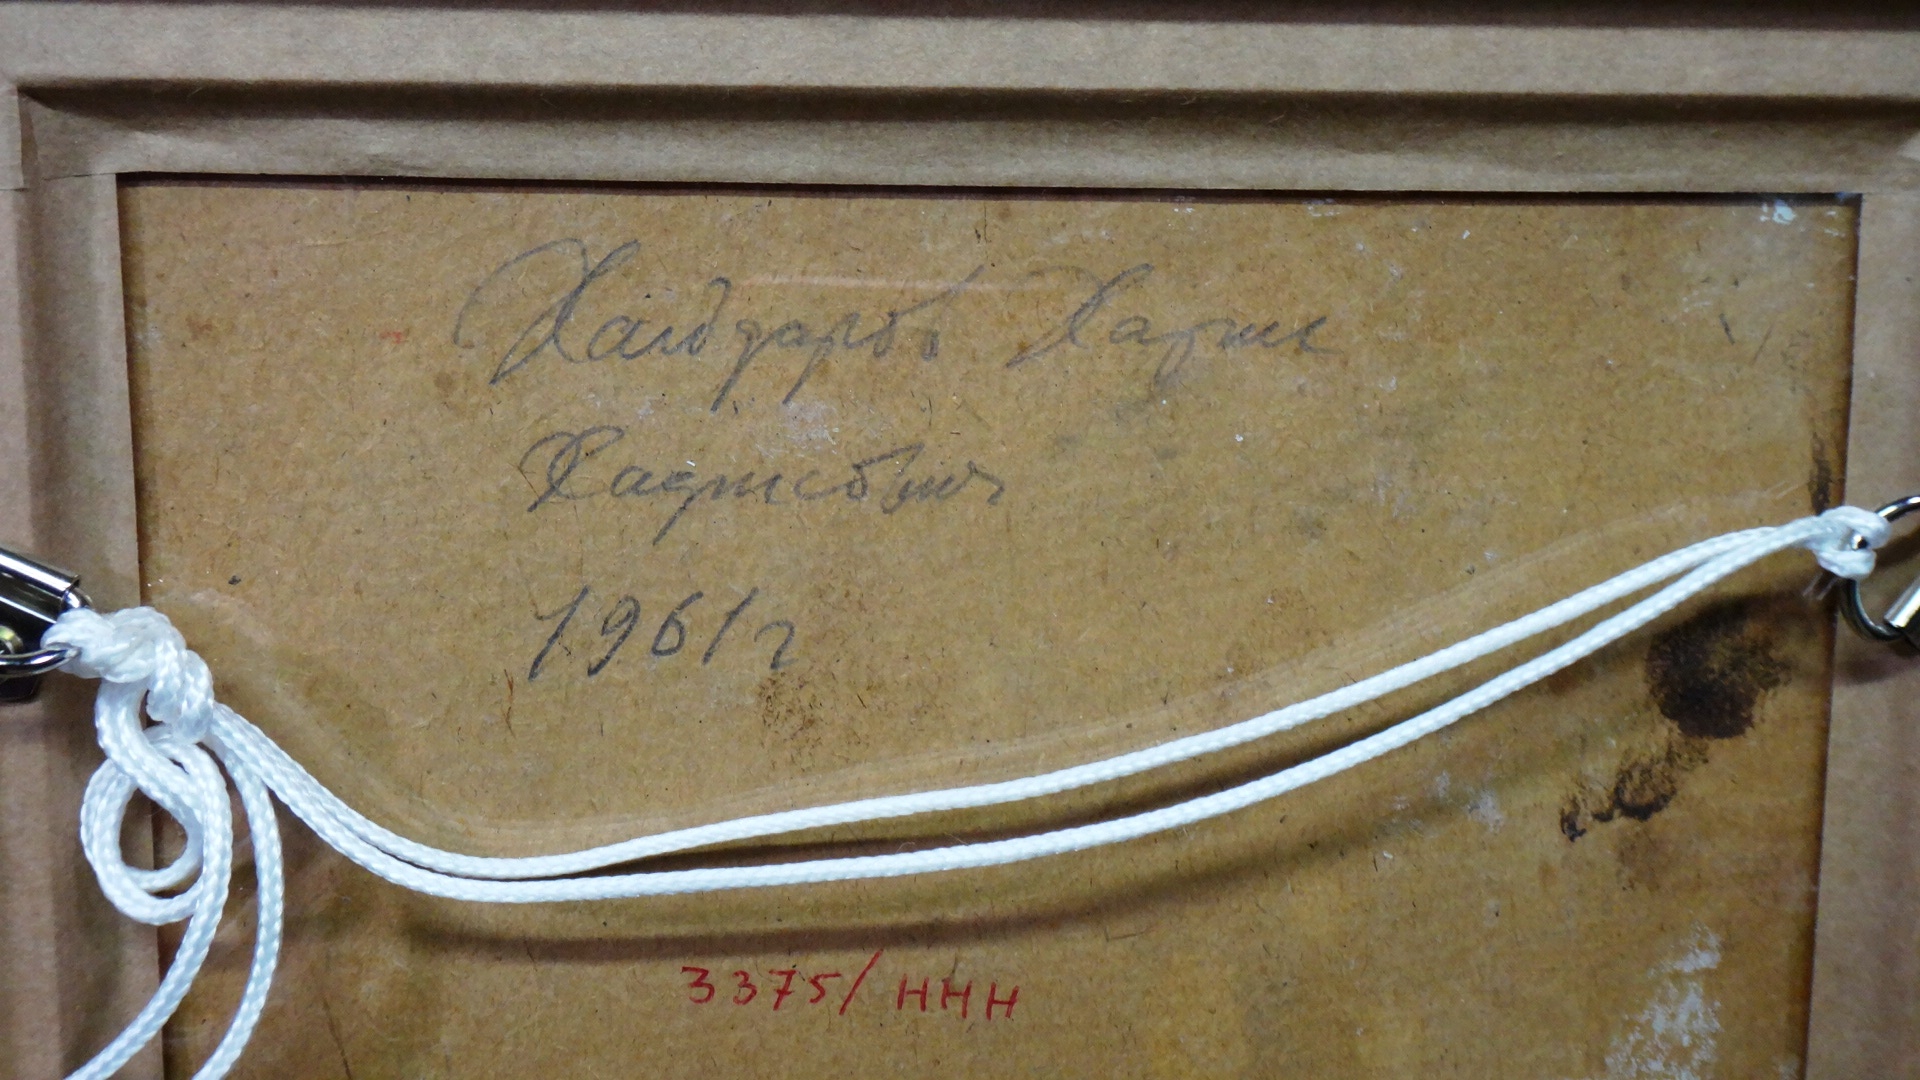 Хайдаров Хадис
Хадисович
1961 г
3375/ННН